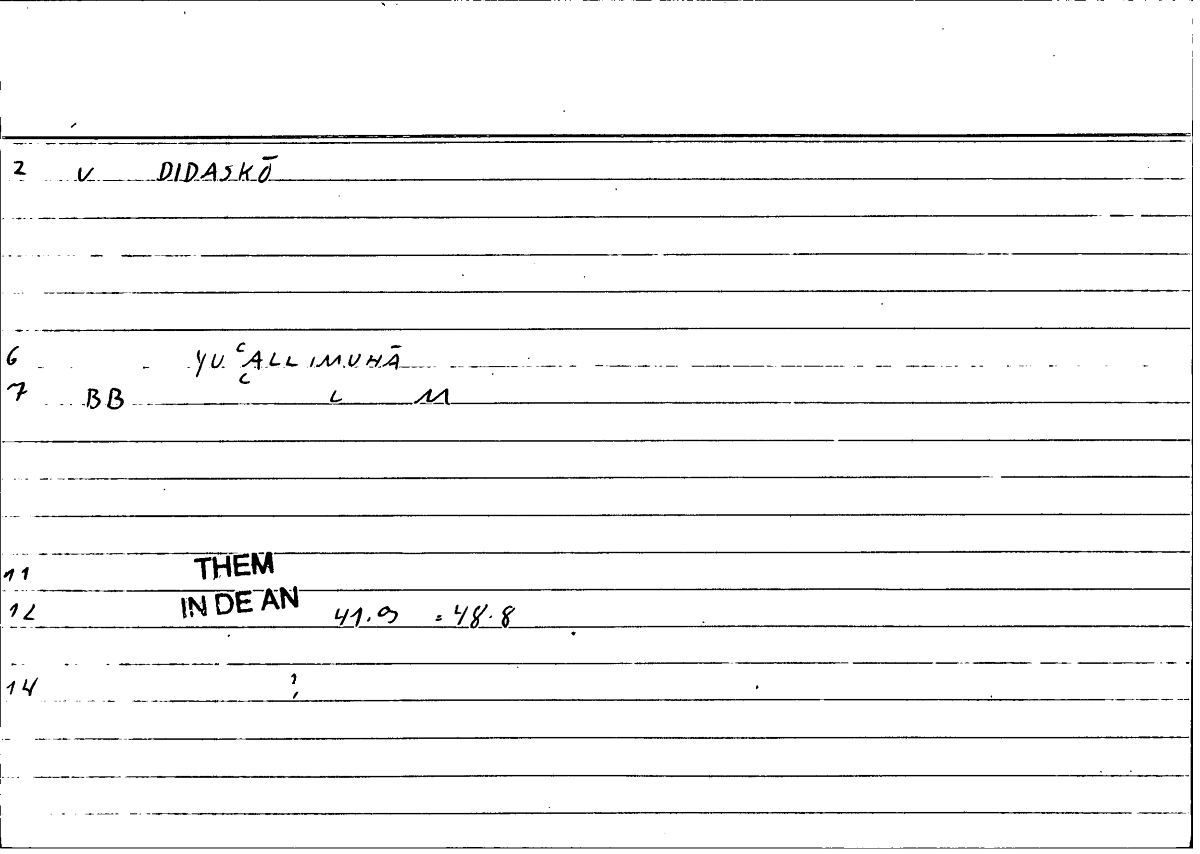 2 V DIDASKŌ
6 YU ʿALLIMUHĀ
7 BB C L M
11 THEM
12 IN DE AN 41.9 = 48.8
14 ?